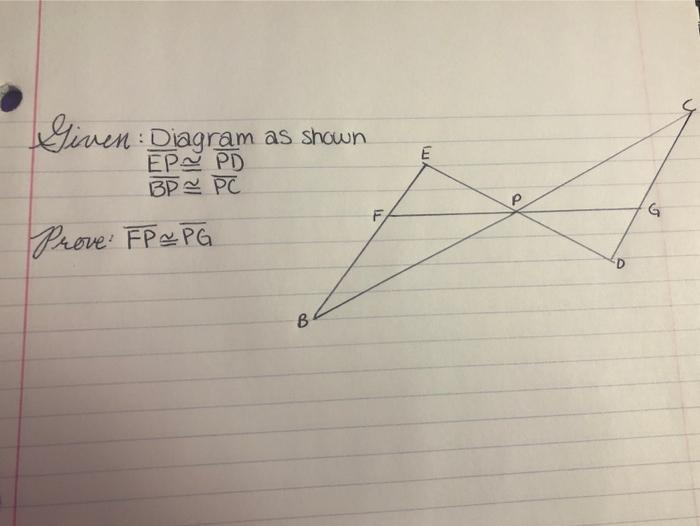 Given: Diagram as shown
EP≅ PD
BP≅ PC
Prove: FP≅PG
C
E
P
F
G
D
B